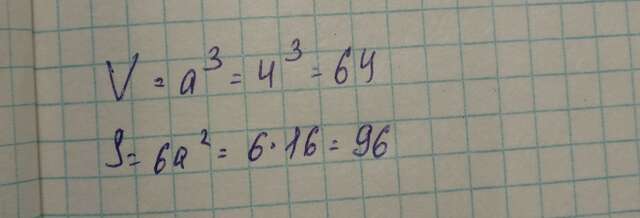 V = a³ = 4³ = 64
S = 6a² = 6·16 = 96